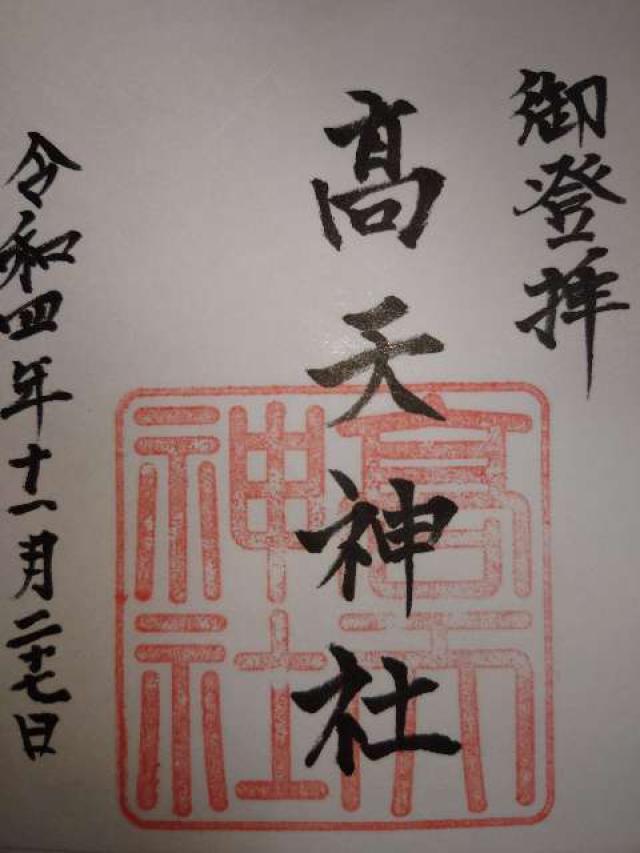 御登拝
高天神社
令和四年十一月二十七日
高天神社